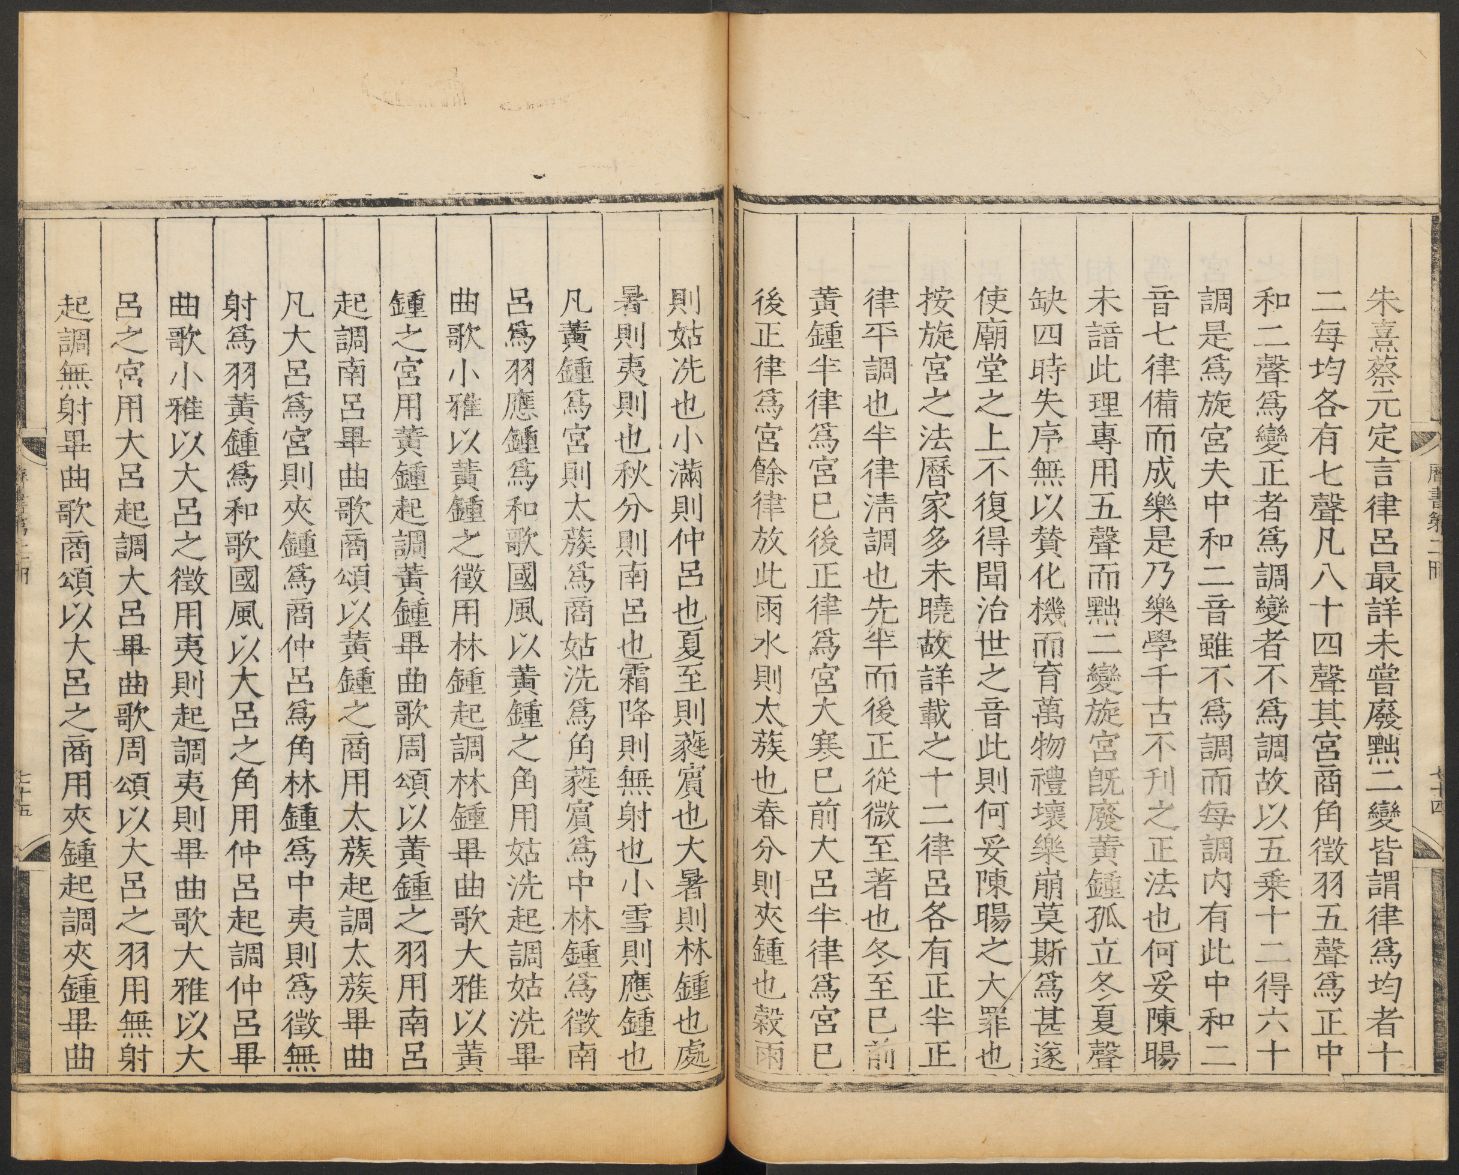 朱熹蔡元定言律呂最詳未嘗廢黜二變皆謂律爲均者十
二每均各有七聲凡八十四聲其宮商角徵羽五聲爲正中
和二聲爲變正者爲調變者不爲調故以五乘十二得六十
調是爲旋宮夫中和二音雖不爲調而每調内有此中和二
音七律備而成樂是乃樂學千古不刊之正法也何妥陳暘
未諳此理專用五聲而黜二變旋宮旣廢黃鍾孤立冬夏聲
缺四時失序無以賛化機而育萬物禮壞樂崩莫斯爲甚遂
使廟堂之上不復得聞治世之音此則何妥陳暘之大罪也
按旋宮之法曆家多未曉故詳載之十二律呂各有正半正
律平調也半律淸調也先半而後正從微至著也冬至已前
黃鍾半律爲宮已後正律爲宮大寒已前大呂半律爲宮已
後正律爲宮餘律放此雨水則太蔟也春分則夾鍾也穀雨
曆書第二冊
七十四
則姑洗也小滿則仲呂也夏至則蕤賓也大暑則林鍾也處
暑則夷則也秋分則南呂也霜降則無射也小雪則應鍾也
凡黃鍾爲宮則太蔟爲商姑洗爲角蕤賓爲中林鍾爲徵南
呂爲羽應鍾爲和歌國風以黃鍾之角用姑洗起調姑洗畢
曲歌小雅以黃鍾之徵用林鍾起調林鍾畢曲歌大雅以黃
鍾之宮用黃鍾起調黃鍾畢曲歌周頌以黃鍾之羽用南呂
起調南呂畢曲歌商頌以黃鍾之商用太蔟起調太蔟畢曲
凡大呂爲宮則夾鍾爲商仲呂爲角林鍾爲中夷則爲徵無
射爲羽黃鍾爲和歌國風以大呂之角用仲呂起調仲呂畢
曲歌小雅以大呂之徵用夷則起調夷則畢曲歌大雅以大
呂之宮用大呂起調大呂畢曲歌周頌以大呂之羽用無射
起調無射畢曲歌商頌以大呂之商用夾鍾起調夾鍾畢曲
七十五